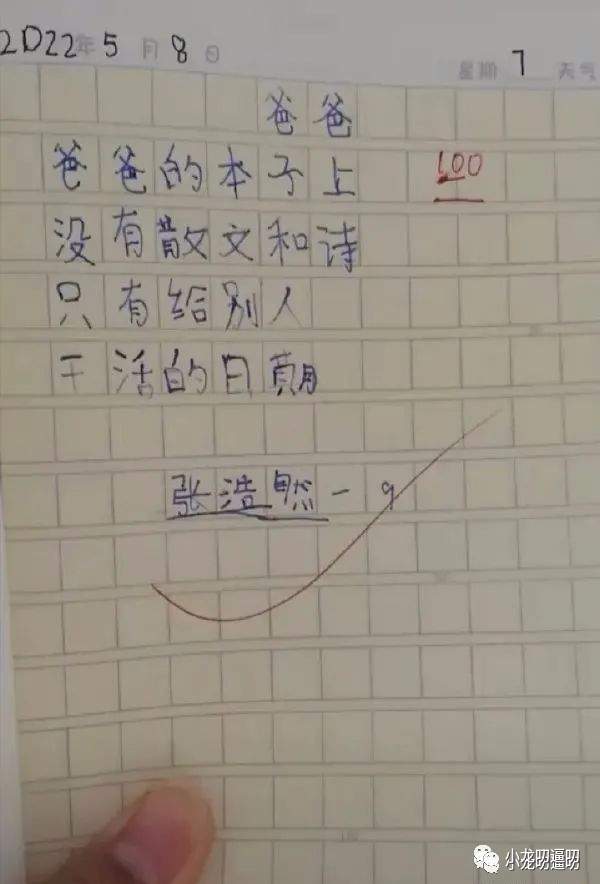 2022年5月8日
星期 7 天气
爸爸
爸爸的本子上 100
没有散文和诗
只有给别人
干活的日期
张浩然一9
小龙叨逼叨